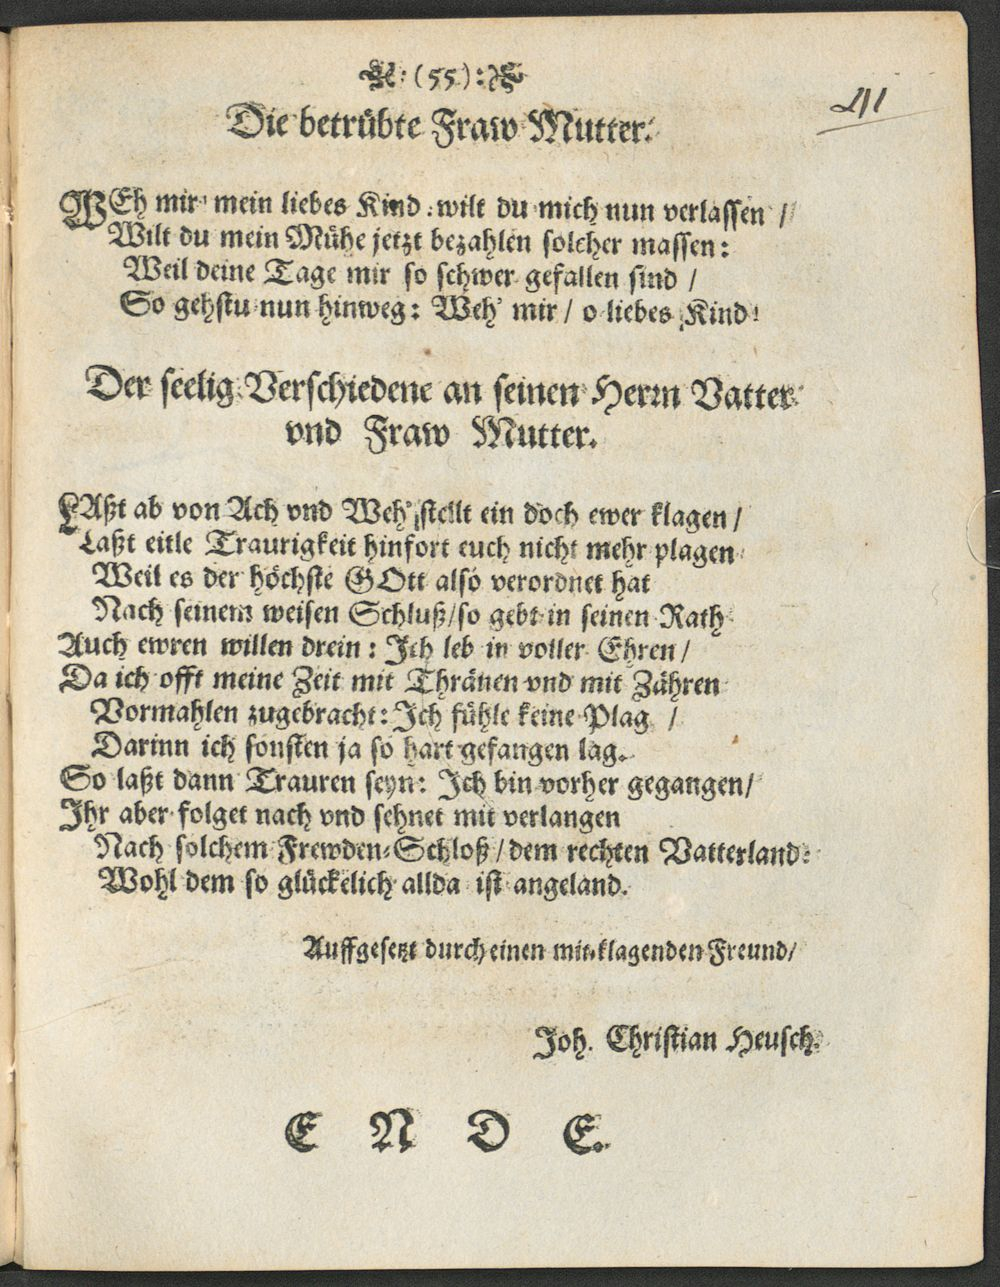 :(55):
211
Die betrübte Fraw Mutter.
WEh mir mein liebes Kind wilt du mich nun verlassen /
Wilt du mein Mühe jetzt bezahlen solcher massen:
Weil deine Tage mir so schwer gefallen sind /
So gehstu nun hinweg: Weh' mir / o liebes Kind!
Der seelig Verschiedene an seinen Herrn Vatter
vnd Fraw Mutter.
LAßt ab von Ach vnd Weh' stellt ein doch ewer klagen /
Laßt eitle Traurigkeit hinfort euch nicht mehr plagen
Weil es der höchste GOtt also verordnet hat
Nach seinem weisen Schluß / so gebt in seinen Rath
Auch ewren willen drein: Ich leb in voller Ehren /
Da ich offt meine Zeit mit Thränen vnd mit Zähren
Vormahlen zugebracht: Ich fühle keine Plag /
Darinn ich sonsten ja so hart gefangen lag.
So laßt dann Trauren seyn: Ich bin vorher gegangen /
Ihr aber folget nach vnd sehnet mit verlangen
Nach solchem Frewden-Schloß / dem rechten Vatterland:
Wohl dem so glückelich allda ist angeland.
Auffgesetzt durch einen mit-klagenden Freund /
Joh. Christian Heusch.
E N D E.